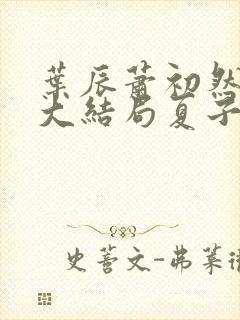 葉辰蕭初然
大結局夏子
史蒂文-弗萊徹